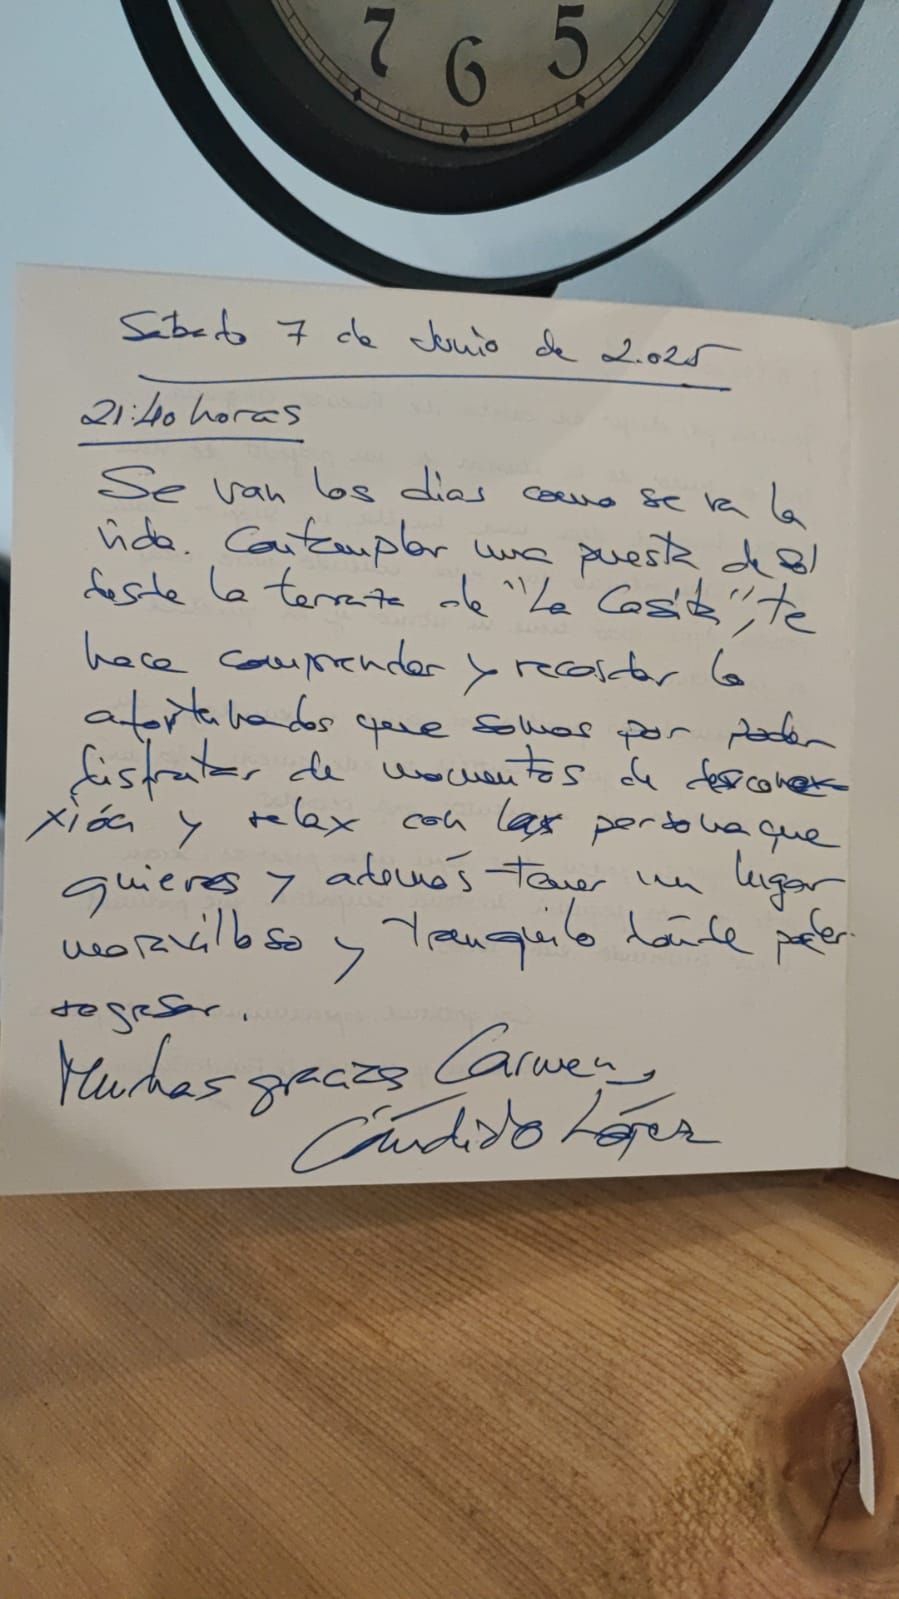 7 6 5
Sábado 7 de Junio de 2.025
21:40 horas
Se van los dias como se va la
vida. Contemplar una puesta de sol
desde la terraza de "La Casita", te
hace comprender y recordar lo
afortunados que somos por poder
disfrutar de momentos de descone-
xión y relax con las persona que
quieres y además tener un lugar
maravilloso y tranquilo dónde poder
regresar.
Muchas gracias Carmen,
Cándido López